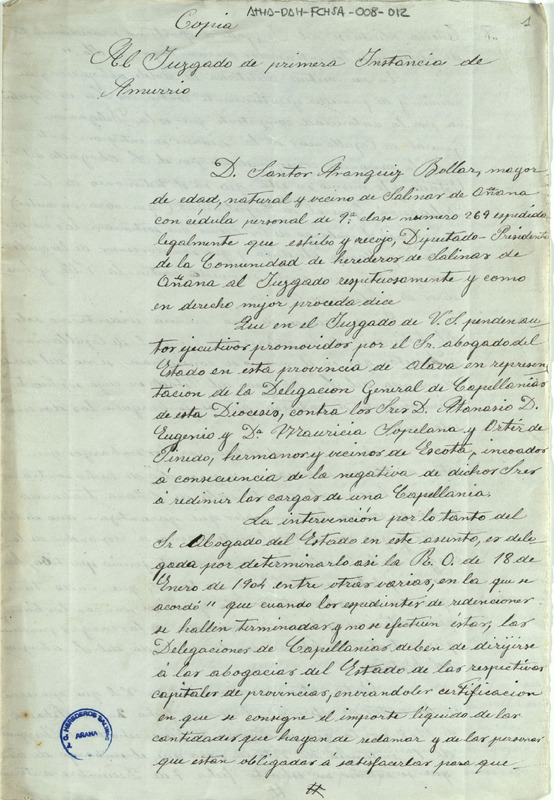 AHA-DAH-FCHSA-008-012
1
Copia
Al Juzgado de primera Instancia de
Amurrio
D. Santos Aranguiz Bollar, mayor
de edad, natural y vecino de Salinas de Añana
con cédula personal de 9ª clase numero 269 espedida
legalmente que exhibo y recojo, Diputado-Presidente
de la Comunidad de herederos de Salinas de
Añana al Juzgado respetuosamente y como
en derecho mejor proceda dice
Que en el Juzgado de V.S. penden au-
tos ejecutivos promovidos por el Sr. abogado del
Estado en esta provincia de Alava en represen
tacion de la Delegacion General de Capellanias
de esta Diocesis, contra los Sres D. Atanasio D.
Eugenio y Dª Mauricia Sopelana y Ortiz de
Pinedo, hermanos y vecinos de Escota, incoados
á consecuencia de la negativa de dichos Sres
á redimir las cargas de una Capellania.
La intervención por lo tanto del
Sr Abogado del Estado en este asunto, es dele
gada por determinarlo asi la R. O. de 18 de
Enero de 1904 entre otras varias, en la que se
acordó " que cuando los espedientes de redenciones
se hallen terminados y no se efectuen estas, las
Delegaciones de Capellanias deben de dirijirse
á las abogacias del Estado de las respectivas
capitales de provincias, enviandoles certificacion
en que se consigne el importe líquido de las
cantidades que hayan de reclamar y de las personas
que estan obligadas á satisfacerlas para que
HEREDEROS SALINAS
AÑANA